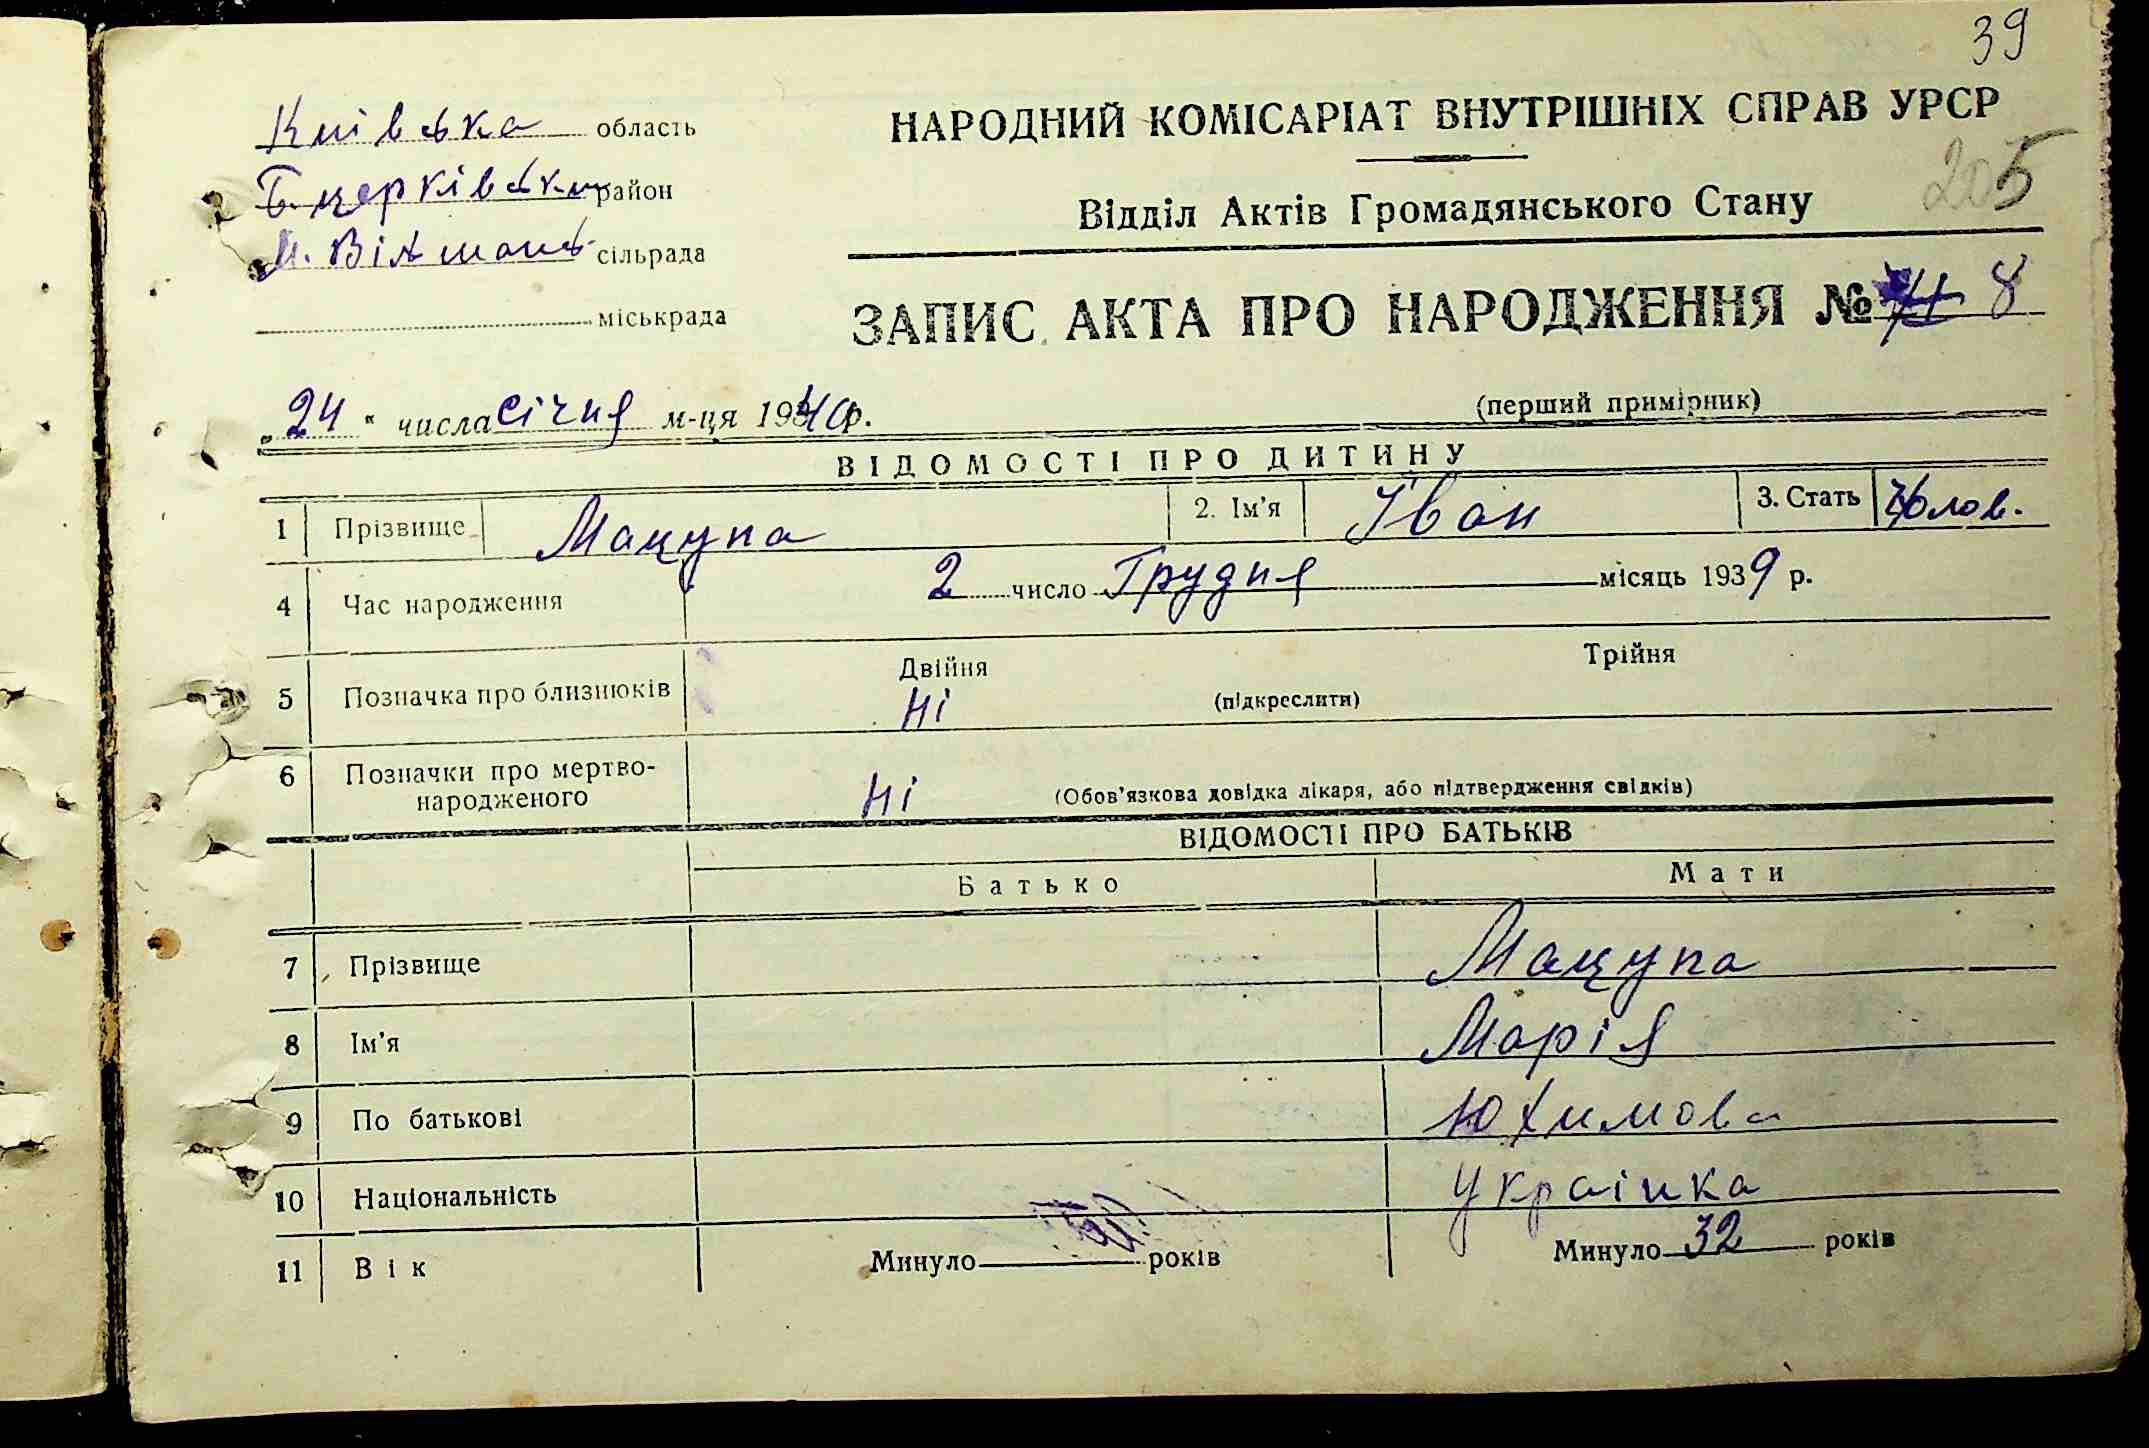 39
Київська область
НАРОДНИЙ КОМІСАРІАТ ВНУТРІШНІХ СПРАВ УРСР
Б. церківськ район
205
Відділ Актів Громадянського Стану
сільрада
міськрада
ЗАПИС АКТА ПРО НАРОДЖЕННЯ № 8
„24" числа січня м-ця 1940р.
(перший примірник)
ВІДОМОСТІ ПРО ДИТИНУ
1 Прізвище Мацупа 2. Ім'я Іван 3. Стать Чолов.
4 Час народження 2 число Грудня місяць 1939 р.
5 Позначка про близнюків Двійня Трійня
Ні (підкреслити)
6 Позначки про мертво-
народженого Ні (Обов'язкова довідка лікаря, або підтвердження свідків)
ВІДОМОСТІ ПРО БАТЬКІВ
Батько Мати
7 Прізвище Мацупа
8 Ім'я Марія
9 По батькові Юхимова
10 Національність Українка
11 Вік Минуло років Минуло 32 років